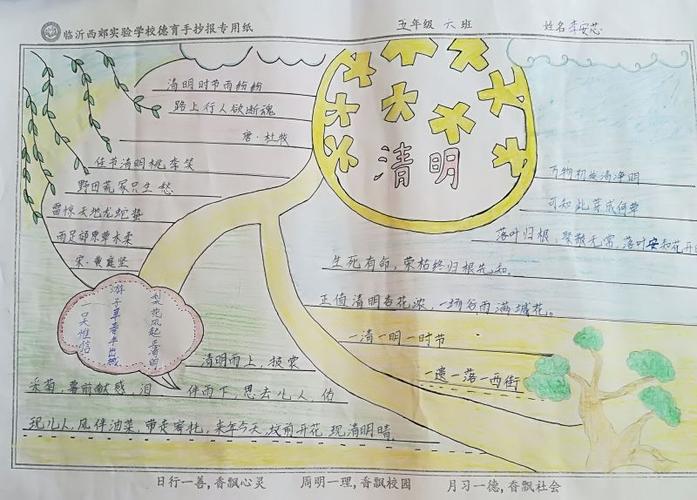 临沂西郊实验学校德育手抄报专用纸
五年级 六班
姓名 李安芯
清明
清明时节雨纷纷
路上行人欲断魂
唐·杜牧
佳节清明桃李笑
野田荒冢只生愁
雷惊天地龙蛇蛰
雨足郊原草木柔
宋·黄庭坚
梨花风起正清明
游子寻春半出城
吴惟信
万物
清净明
可知此
落叶归根，聚散无常，落叶安知花开
生死有命，荣枯终归根先知
正值清明杏花浓，一场谷雨满城花。
一清一明一时节
一逸一落一西街
清明雨上，披裳
采菊，墓前献感，泪
伴雨下，思去儿人，仿
现儿人，风伴油菜，带走
来年今天，坟前开花，现清明晴
日行一善，香飘心灵
周明一理，香飘校园
月习一德，香飘社会